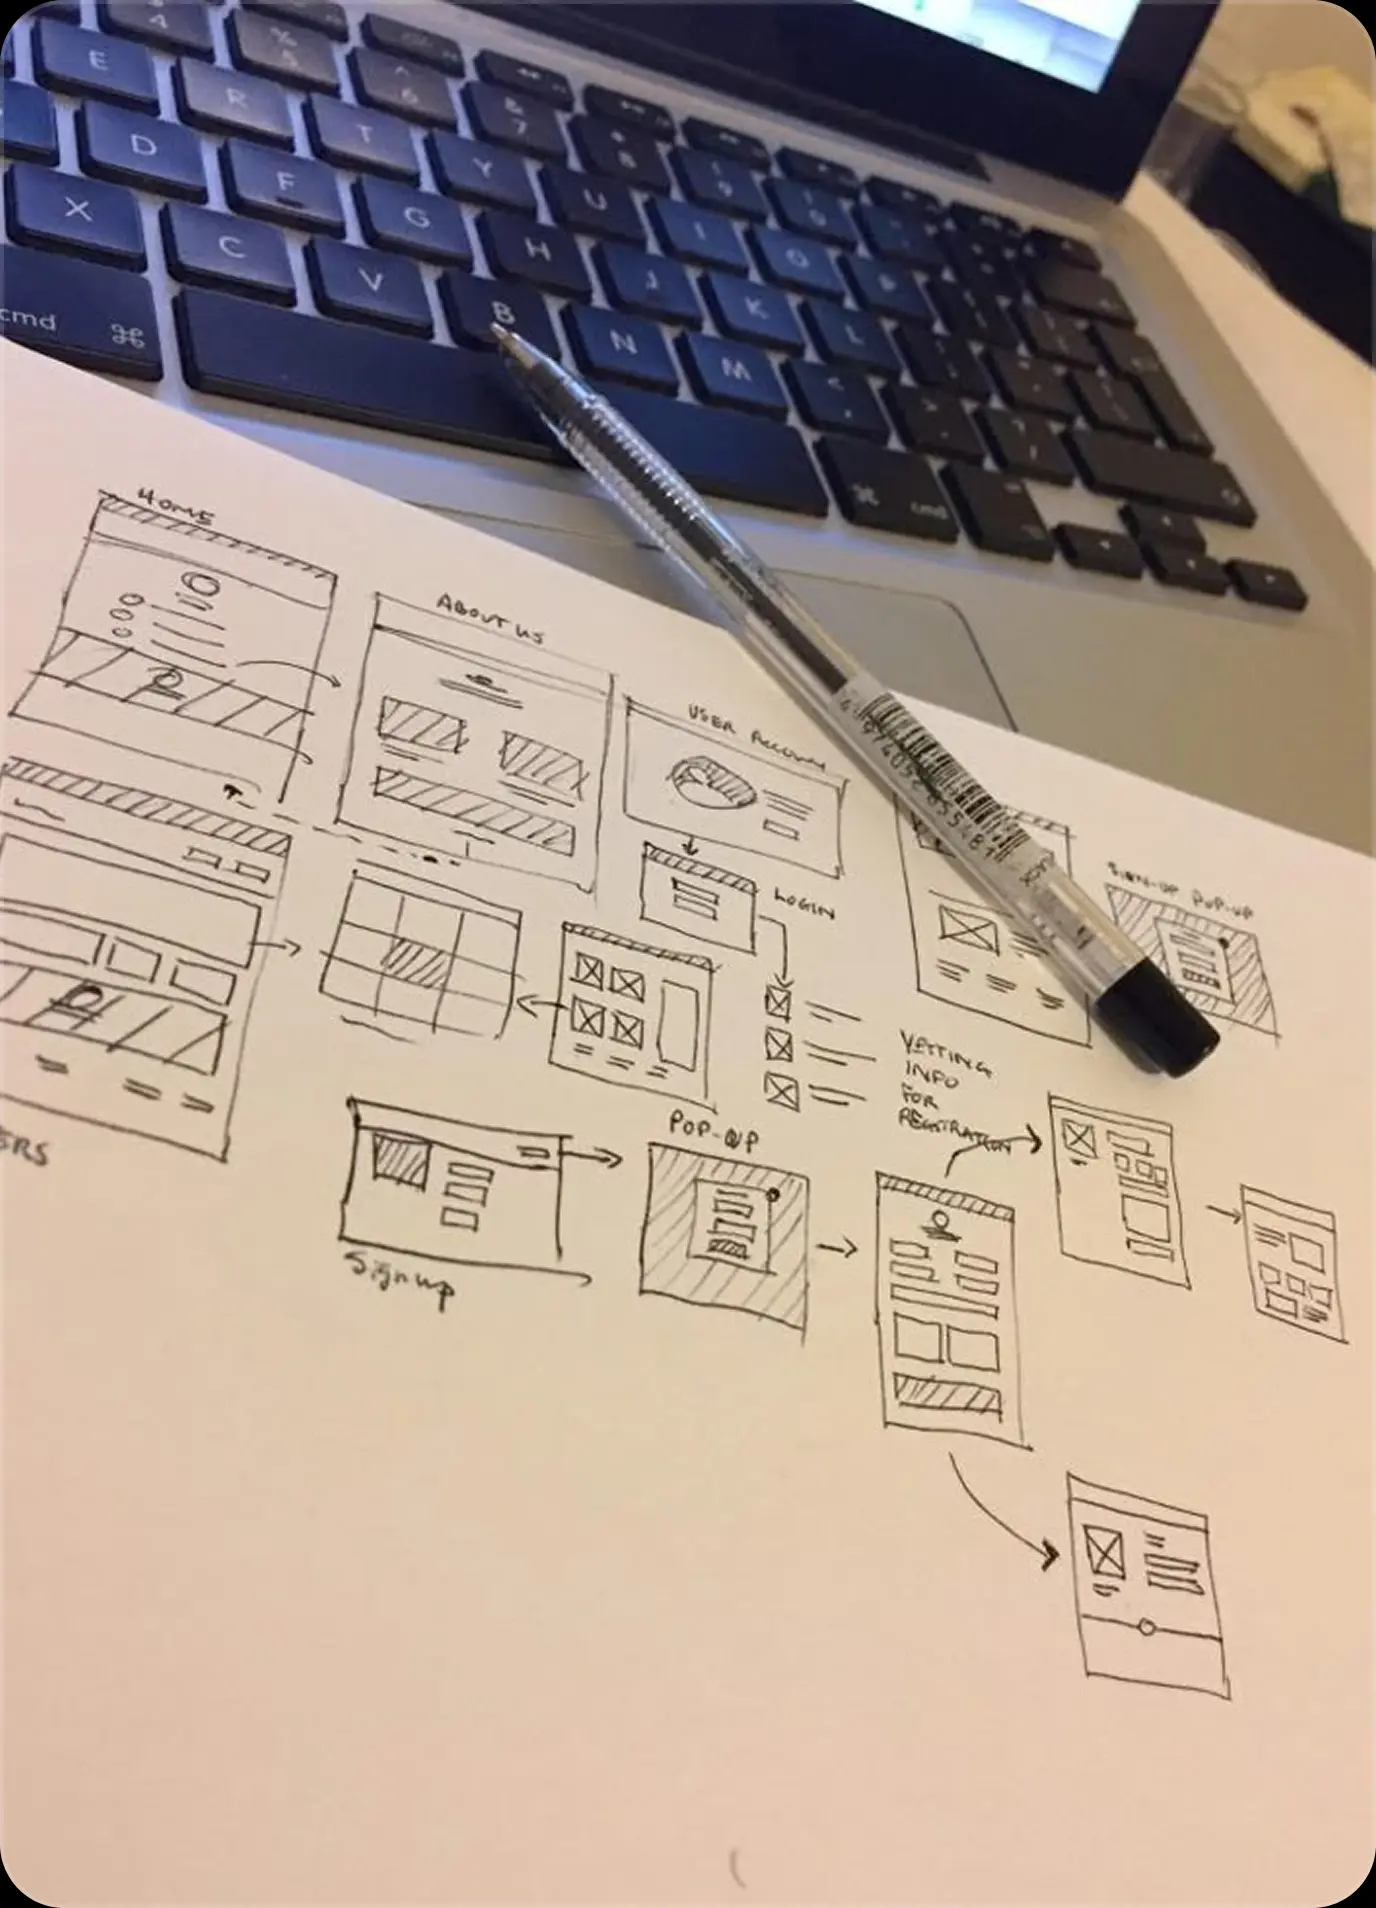 E
R
T
Y
U
D
F
G
H
J
K
L
X
C
V
B
N
M
cmd ⌘
⌘ cmd
HOME
ABOUT US
USER ACCOUNT
LOGIN
SIGN-UP POP-UP
VETTING
INFO
FOR
REGISTRATION
ERS
POP-UP
Signup